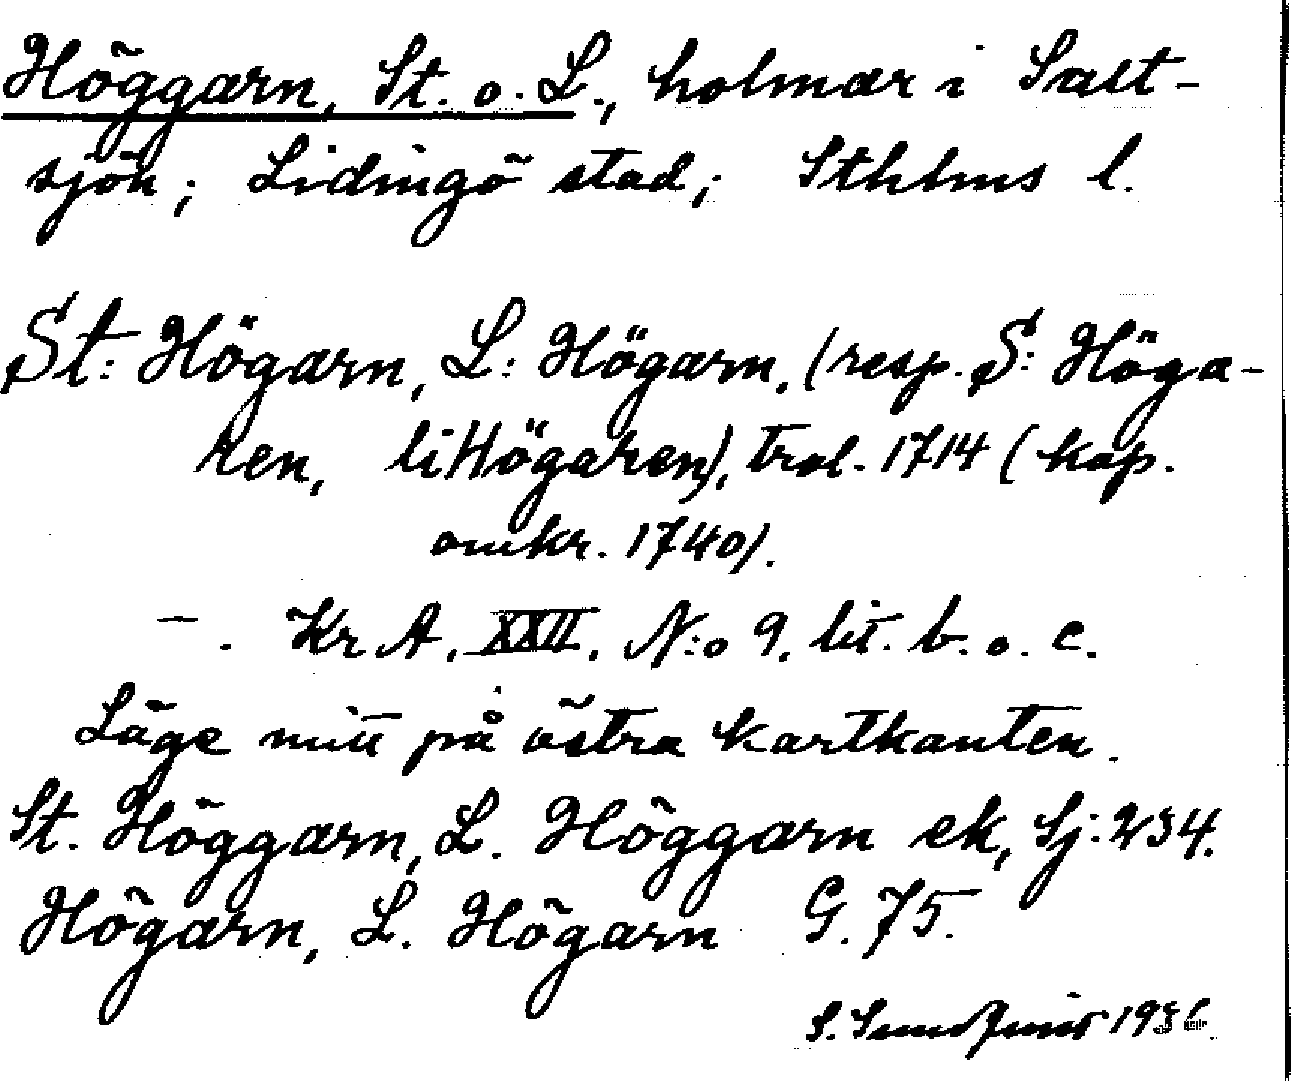 Höggarn, St. o. L., holmar i Salt-
sjön; Lidingö stad; Sthlms l.
St: Högarn, L: Högarn, (resp. S: Höga-
ren, liHögaren), trol. 1714 (kop.
omkr. 1740).
-. Kr A, XXII, N:o 9, lit. b. o. c.
Läge mitt på östra kartkanten.
St. Höggarn, L. Höggarn ek, Sj: 234.
Högarn, L. Högarn G. 75.
S.